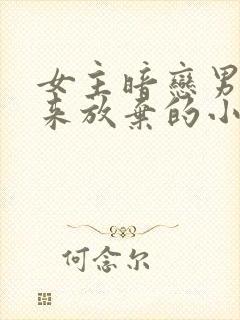 女主暗戀男
来放棄的小
何念尔